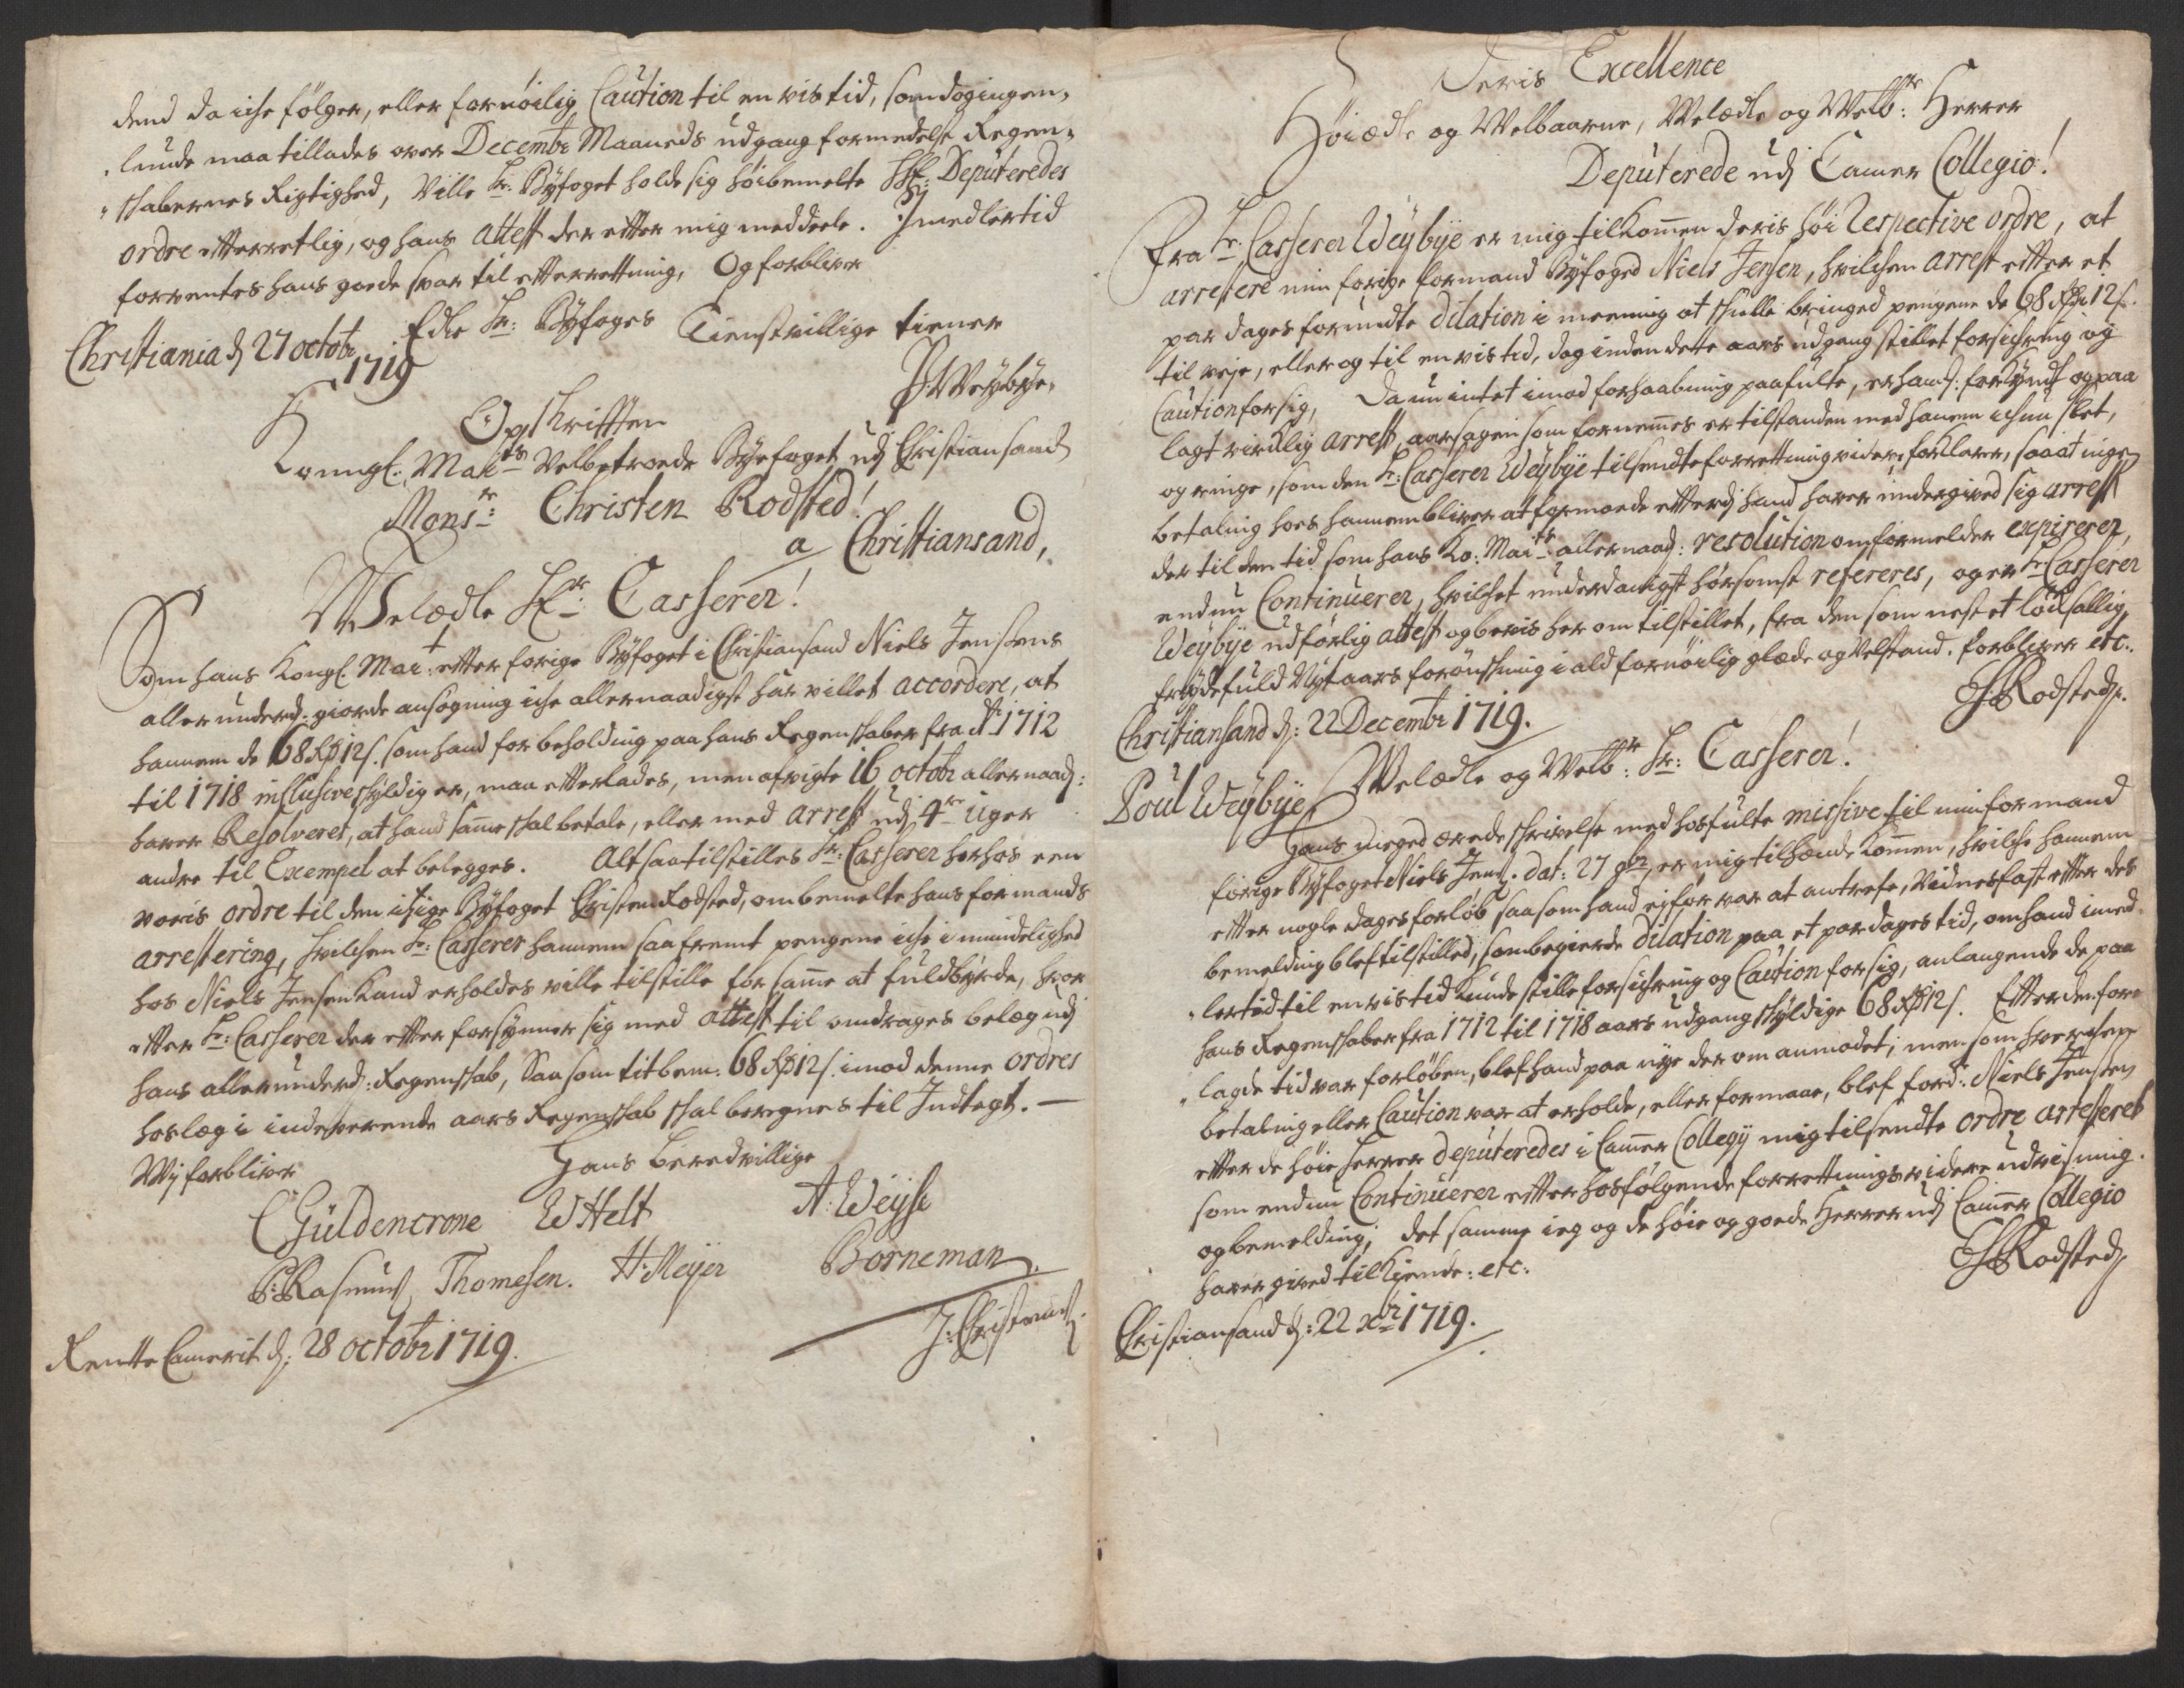 dend da iche følger, eller fornøilig Caution til en vis tid, som dog ingen-
lunde maa tillades over Decembr Maaneds udgang formedelst Regen-
skabernes Rigtighed, Ville Hr: Byfoget holde sig høibemelte HHr: Deputeredes
ordre efterretlig, og hans attest der efter mig meddeele. Imedlertid
forventes hans goede svar til efterrettning, Og forbliver
Edle Hr: Byfoges Tienstvillige tiener
Christiania d 27 octobr
1719
P: Weybye.
Opskrifften
Konngl. Maits Velbetroede Byefoget udj Christiansand
Monsr: Christen Rodsted!
a Christiansand,
Welædle Hr: Casserer!
Som hans Kongl. Mai:t efter forige Byfoget i Christiansand Niels Jensens
allerunderd: giorde ansøgning iche allernaadigst har villet accordere, at
hannem de 68 Rd 12 s. som hand for beholding paa hans Regenskaber fra Ao 1712
til 1718 inclusive skyldig er, maa efterlades, men afvigte 16 octobr allernaad:
haver Resolveret, at hand samme skal betale, eller med arrest udj 4re uger
andre til Exempel at belegges. Altsaa tilstilles Hr: Casserer herhos een
voris ordre til den itzige Byfoget Christen Rodsted, om bemelte hans formands
arrestering, hvilchen Hr: Casserer hannem saafremt pengene iche i mindelighed
hos Niels Jensen kand erholdes ville tilstille for samme at fuldbyrde, hvor
efter Hr: Casserer der efter forsynner sig med attest til omdrages belæg udj
hans allerunderd: Regenskab, Saasom titbem: 68 Rd 12 s. imod denne ordres
hoslæg i indeværende aars Regenskab skal beregnes til Indtegt. —
Wij forbliver
Hans beredvillige
C Güldencrone W Helt A: Weyse
P: Rasmus Thomesen. H: Meyer Borneman
J: Christens
Rentte Camerit d: 28 octobr 1719.
Deris Excellence
Høiædle og Welbaarne, Welædle og Welbr: Herrer
Deputerede udj Camer Collegio!
Fra Hr: Casserer Weybye er mig tilkommen deris høi Respective ordre, at
arrestere min forige formand Byfoged Niels Jensen, hvilchen arrest efter et
par dages forundte dilation i meening at skulle bringed pengene de 68 Rdr 12 s.
til veje, eller og til en vis tid, dog inden dette aars udgang stillet forsichring og
Caution for sig, Da nu intet imod forhaabning paafulte, er hand: forkyndt og paa
lagt virklig arrest, aarsagen som fornemmes er tilstanden med hanem ichun slet,
og ringe, som den Hr: Casserer Weybye tilsendte forrettning videre forklarer, saa at ingen
betaling hoes hannem bliver at formoede efterdj hand haver undergived sig arrest
der til den tid som hans Ko: Maits allernaad: resolution omformelder expirerer,
endnu Continuerer, hvilchet underdanigst hørsomst refereres, og er Hr: Casserer
Weybye udførlig attest og bevis her om tilstillet, fra den som nest et løcksallig,
frydefuld Nyt aars forønskning i ald fornøilig glæde og velstand. forbliver etc.
C: Rodsted.
Christiansand d: 22 Decembr 1719.
Welædle og Welbr: Hr: Casserer!
Poul Weybye
Hans meged ærede skrivelse med hosfulte missive til min formand
forige Byfoget Niels Jens: dat: 27 9br, er mig tilhænde kommen, hvilche hannem
efter nogle dages forløb saasom hand ej før var at antrefe, Vidnesfast efter des
bemelding blef tilstilled, som begierde dilation paa et par dages tid, om hand imed-
lertid til en vis tid kunde stille forsichring og Caution for sig, anlangende de paa
hans Regenskaber fra 1712 til 1718 aars udgang skyldige 68 Rd 12 s. Efter den fore-
lagde tid var forløben, blef hand paa nye der om anmodet; men som hverchen
betaling eller Caution var at erholde, eller formaae, blef ford: Niels Jensen
efter de høie Herrer deputeredes i Camer Collegij mig tilsendte ordre arresteret
som endnu Continuerer efter hosfølgende forrettnings videre udviisning
og bemelding; det samme ieg og de høie og goede Herrer udj Camer Collegio
haver gived tilkjende: etc:
C: Rodsted
Christiansand d: 22 Xbr 1719.